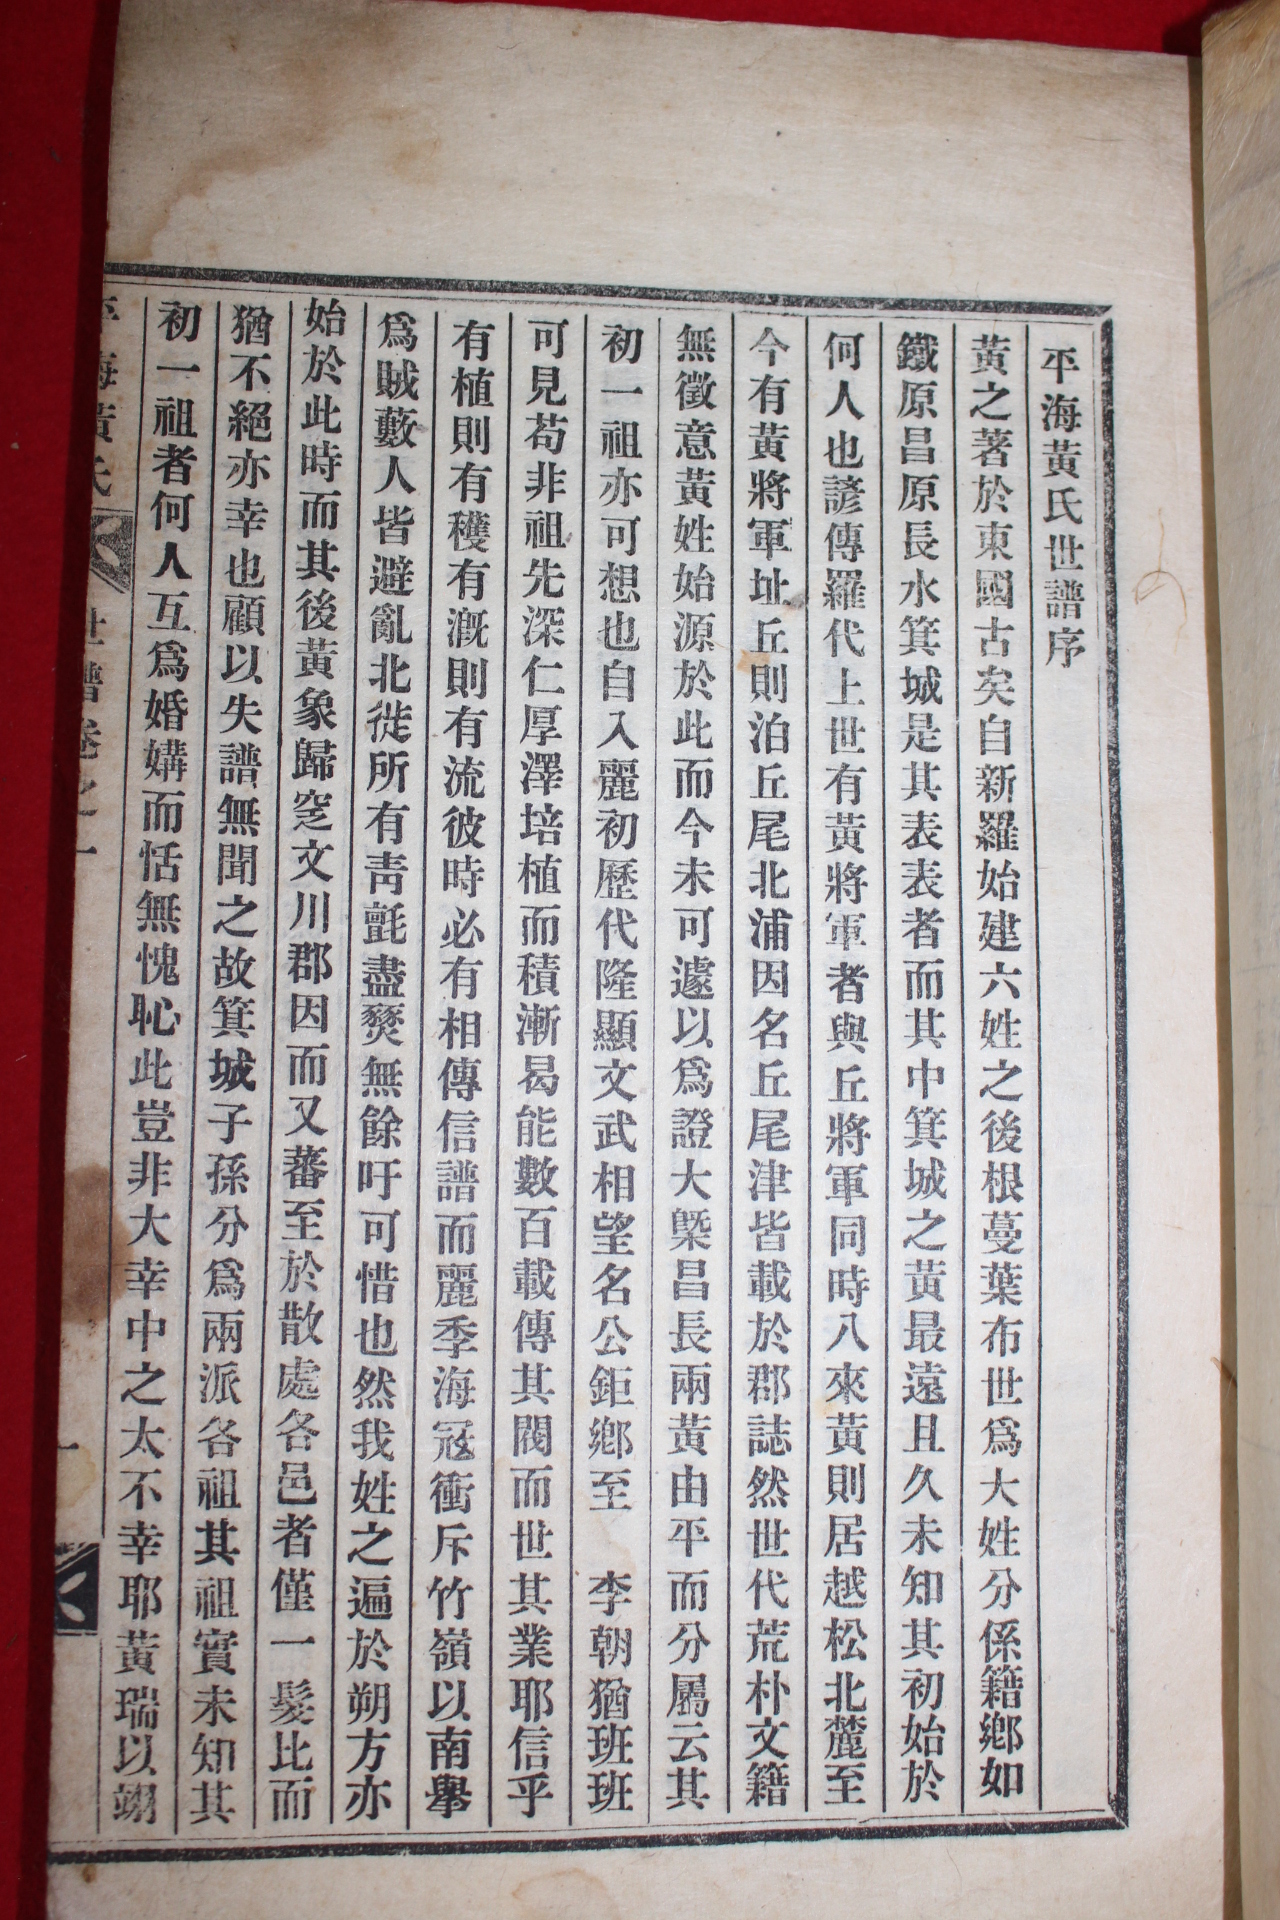 平海黃氏世譜序
黃之著於東國古矣自新羅始建六姓之後根蔓葉布世爲大姓分係籍鄕如
鐵原昌原長水箕城是其表表者而其中箕城之黃最遠且久未知其初始於
何人也諺傳羅代上世有黃將軍者與丘將軍同時八來黃則居越松北麓至
今有黃將軍址丘則泊丘尾北浦因名丘尾津皆載於郡誌然世代荒朴文籍
無徵意黃姓始源於此而今未可遽以爲證大槩昌長兩黃由平而分屬云其
初一祖亦可想也自入麗初歷代隆顯文武相望名公鉅鄕至 李朝猶班班
可見苟非祖先深仁厚澤培植而積漸曷能數百載傳其閥而世其業耶信乎
有植則有穫有漑則有流彼時必有相傳信譜而麗季海冦衝斥竹嶺以南擧
爲賊藪人皆避亂北徙所有靑氈盡燹無餘吁可惜也然我姓之遍於朔方亦
始於此時而其後黃象歸窆文川郡因而又蕃至於散處各邑者僅一髮比而
猶不絕亦幸也顧以失譜無聞之故箕城子孫分爲兩派各祖其祖實未知其
初一祖者何人互爲婚媾而恬無愧恥此豈非大幸中之太不幸耶黃瑞以翊
平海黃氏 世譜卷之一 一